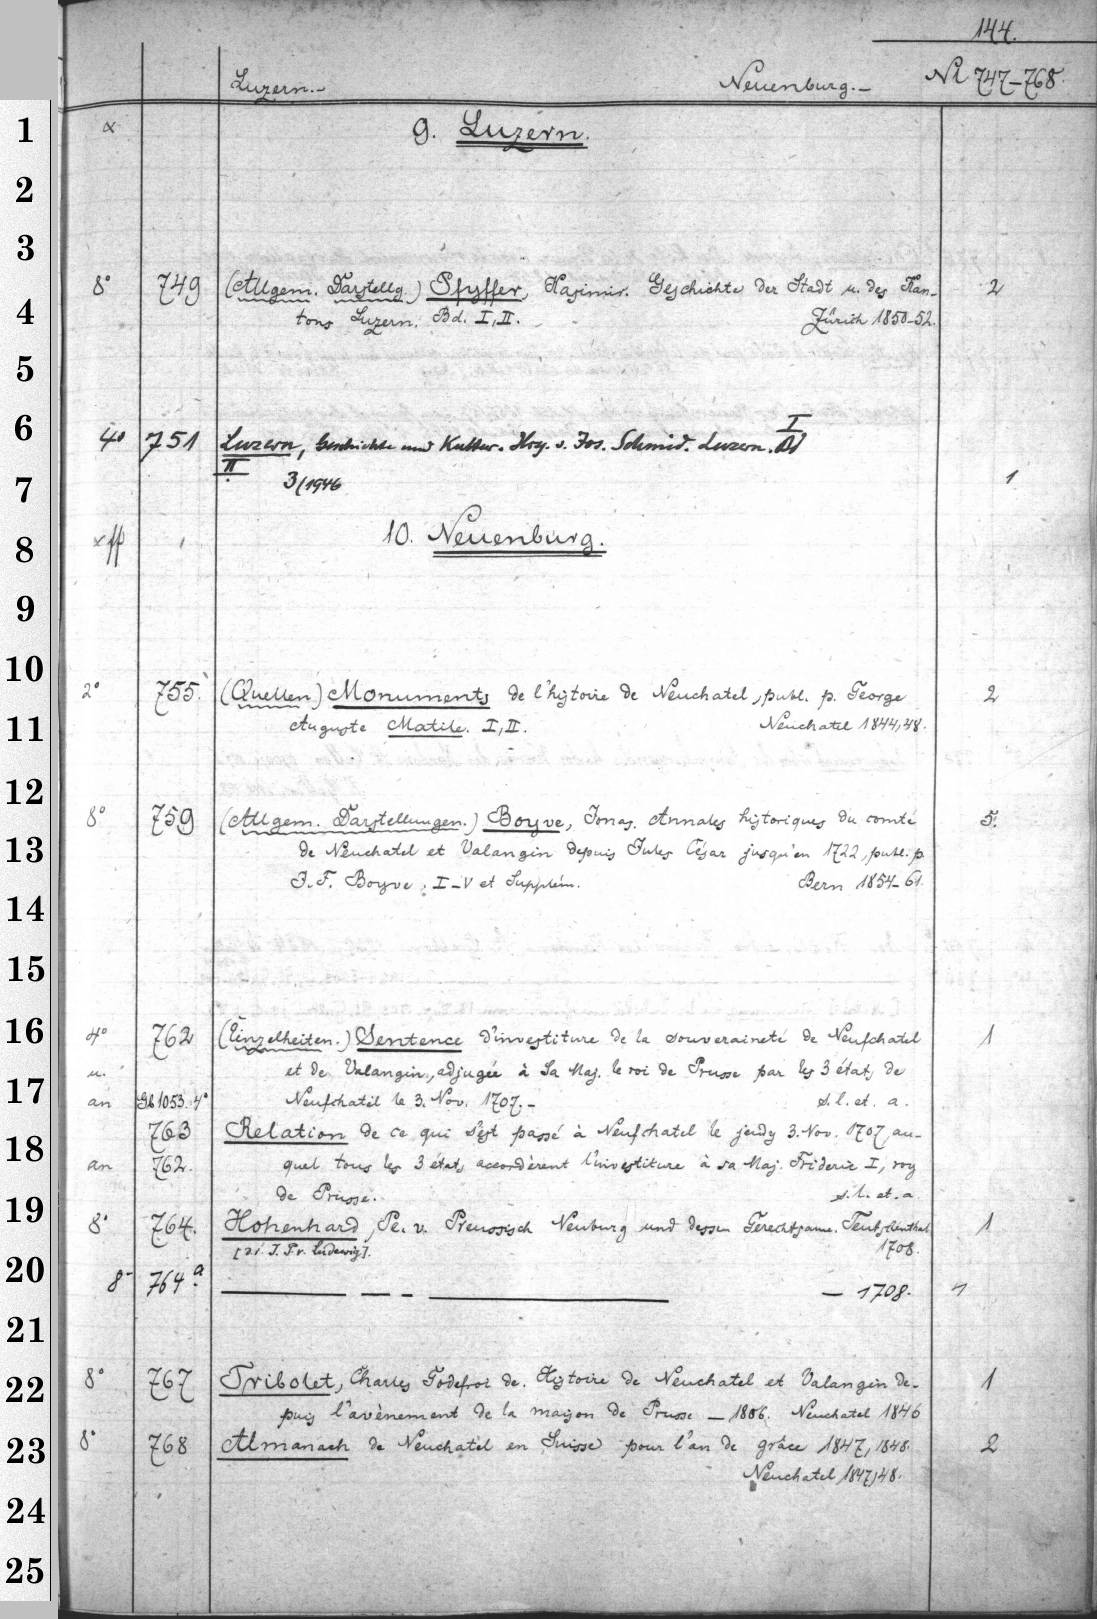 144.
Luzern.- Neuenburg.- No 747-768.
1 α 9. Luzern.
2
3
8° 749 (Allgem. Darstellg.) Pfyffer, Kasimir. Geschichte der Stadt u. des Kan- 2
4 tons Luzern. Bd. I, II. Zürich 1850-52.
5
6 4° 751 Luzern, Geschichte und Kultur. Hrg. v. Jos. Schmid. Luzern. Bd I
II
7 3/1946 1
8 10. Neuenburg.
9
10
2° 755. (Quellen) Monuments de l'histoire de Neuchatel, publ. p. George 2
11 Auguste Matile. I, II. Neuchatel 1844,48.
12
8° 759 (Allgem. Darstellungen.) Boyve, Jonas. Annales historiques du comté 5.
13 de Neuchatel et Valangin depuis Jules César jusqu'en 1722, publ. p.
J. F. Boyve, I-V et Supplém. Bern 1854-61.
14
15
16 4° 762 (Einzelheiten.) Sentence d'investiture de la souveraineté de Neufchatel 1
u. et de Valangin, adjugée à Sa Maj. le roi de Prusse par les 3 états de
17 an Gb 1053. 4° Neufchatel le 3. Nov. 1707.- s. l. et. a.
763 Relation de ce qui s'est passé à Neufchatel le jeudy 3. Nov. 1707, au-
18 an 762. quel tous les 3 états accordèrent l'investiture à sa Maj. Frideric I, roy
de Prusse. s. l. et. a
19 8° 764. Hohenhard, Pe. v. Preussisch Neuburg und dessen Gerechtsame. Teutschenthal 1
[ai J. Pr. Ludewig]. 1708.
20 8° 764 a — — - — — 1708. 1
21
22 8° 767 Tribolet, Charles Godefroi de. Histoire de Neuchatel et Valangin de- 1
puis l'avènement de la maison de Prusse — 1806. Neuchatel 1846
23 8° 768 Almanach de Neuchatel en Suisse pour l'an de grâce 1847, 1848. 2
Neuchatel 1847,48.
24
25